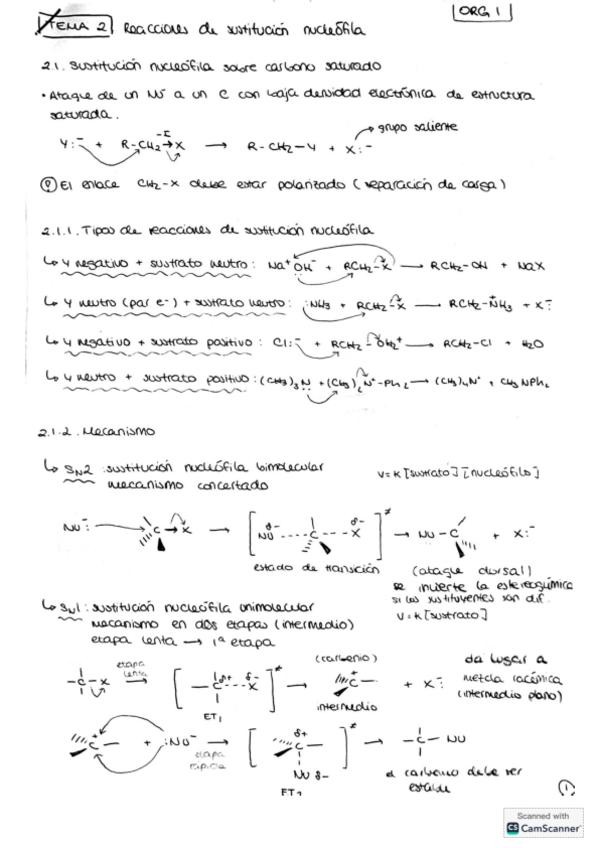 TEMA 2 Reacciones de sustitución nucleófila
ORG 1
2.1. Sustitución nucleófila sobre carbono saturado
• Ataque de un Nu⁻ a un C con baja densidad electrónica de estructura
saturada.
grupo saliente
Y:⁻ + R-CH₂→X → R-CH₂-Y + X:⁻
-I
El enlace CH₂-X debe estar polarizado (separación de carga)
2.1.1. Tipos de reacciones de sustitución nucleófila
↳ Y negativo + sustrato neutro: Na⁺OH⁻ + RCH₂-X → RCH₂-OH + NaX
↳ Y neutro (par e-) + sustrato neutro: :NH₃ + RCH₂-X → RCH₂-N⁺H₃ + X:⁻
↳ Y negativo + sustrato positivo: Cl:⁻ + RCH₂-OH₂⁺ → RCH₂-Cl + H₂O
↳ Y neutro + sustrato positivo: (CH₃)₃N + (CH₃)₂N⁺-Ph₂ → (CH₃)₄N⁺ + CH₃NPh₂
2.1.2. Mecanismo
↳ SN2: sustitución nucleófila bimolecular
mecanismo concertado
V=K[sustrato][nucleófilo]
Nu:⁻ C→X → [Nu δ- ---- C --- X δ-]≠ → Nu-C + X:⁻
estado de transición
(ataque dorsal)
se invierte la estereoquímica
si los sustituyentes son dif.
↳ SN1: sustitución nucleófila unimolecular
V=K[sustrato]
mecanismo en dos etapas (intermedio)
etapa lenta → 1ª etapa
etapa
lenta
-C-X → [-C δ+ --- X δ-]≠ → C⁺- + X:⁻
ET₁
intermedio
da lugar a
mezcla racémica
(intermedio plano)
C⁺- + :Nu⁻ → [C δ+ - Nu δ-]≠ → -C-NU
etapa
rápida
el carbono debe ser
estable
1
Scanned with
CS CamScanner